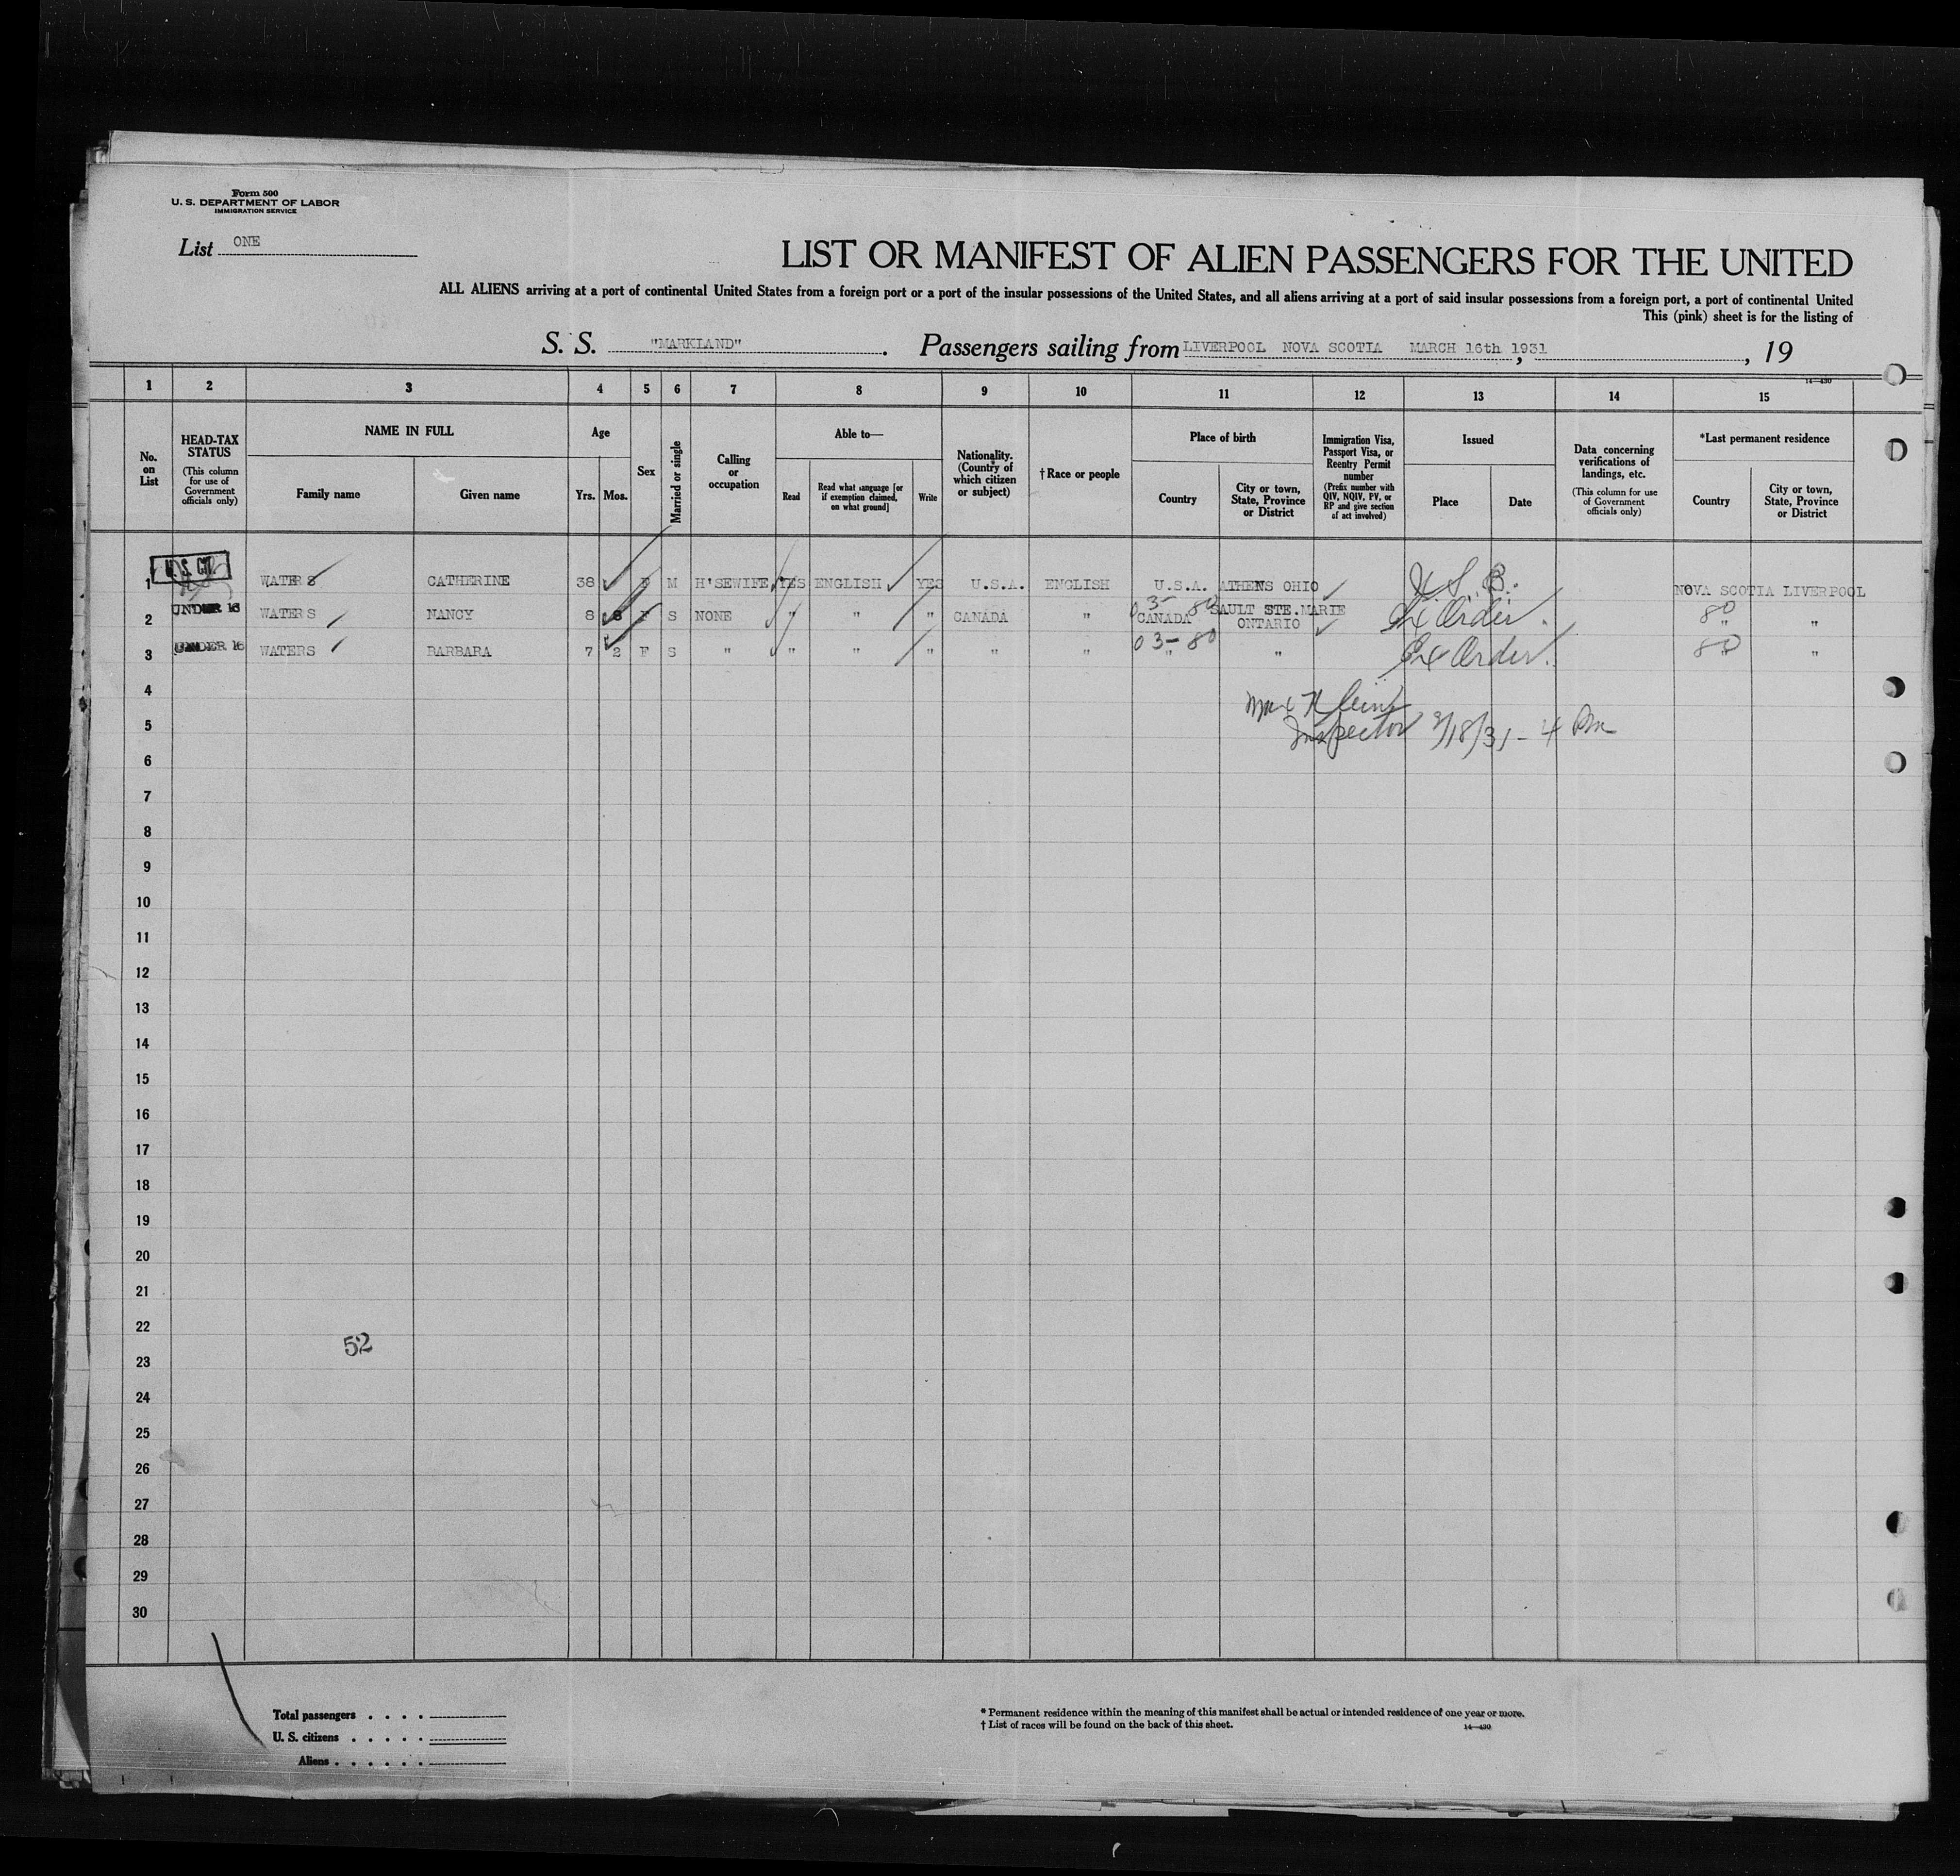 Form 500
U. S. DEPARTMENT OF LABOR
IMMIGRATION SERVICE
List ONE
LIST OR MANIFEST OF ALIEN PASSENGERS FOR THE UNITED
ALL ALIENS arriving at a port of continental United States from a foreign port or a port of the insular possessions of the United States, and all aliens arriving at a port of said insular possessions from a foreign port, a port of continental United
This (pink) sheet is for the listing of
S. S. "MARKLAND". Passengers sailing from LIVERPOOL NOVA SCOTIA MARCH 16th, 1931, 19
14—430
1 2 3 4 5 6 7 8 9 10 11 12 13 14 15
No. on List
HEAD-TAX STATUS
(This column for use of Government officials only)
NAME IN FULL
Family name
Given name
Age
Yrs.
Mos.
Sex
Married or single
Calling or occupation
Able to—
Read
Read what language [or if exemption claimed, on what ground]
Write
Nationality. (Country of which citizen or subject)
† Race or people
Place of birth
Country
City or town, State, Province or District
Immigration Visa, Passport Visa, or Reentry Permit number
(Prefix number with QIV, NQIV, PV, or RP and give section of act involved)
Issued
Place
Date
Data concerning verifications of landings, etc.
(This column for use of Government officials only)
*Last permanent residence
Country
City or town, State, Province or District
1 U. S. CIT. WATERS CATHERINE 38 F M H'SEWIFE YES ENGLISH YES U.S.A. ENGLISH U.S.A. ATHENS OHIO U.S.B. NOVA SCOTIA LIVERPOOL
03-80 SAULT STE.MARIE
2 UNDER 16 WATERS NANCY 8 8 F S NONE " " " CANADA " CANADA ONTARIO Ex Order. 80 " "
03-80
3 UNDER 16 WATERS BARBARA 7 2 F S " " " " " " " " Ex Order. 80 " "
4
5 Inspector 3/18/31 - 4 Pm
6
7
8
9
10
11
12
13
14
15
16
17
18
19
20
21
22
52
23
24
25
26
27
28
29
30
Total passengers . . . .
U. S. citizens . . . . .
Aliens . . . . . .
* Permanent residence within the meaning of this manifest shall be actual or intended residence of one year or more.
† List of races will be found on the back of this sheet.
14—430